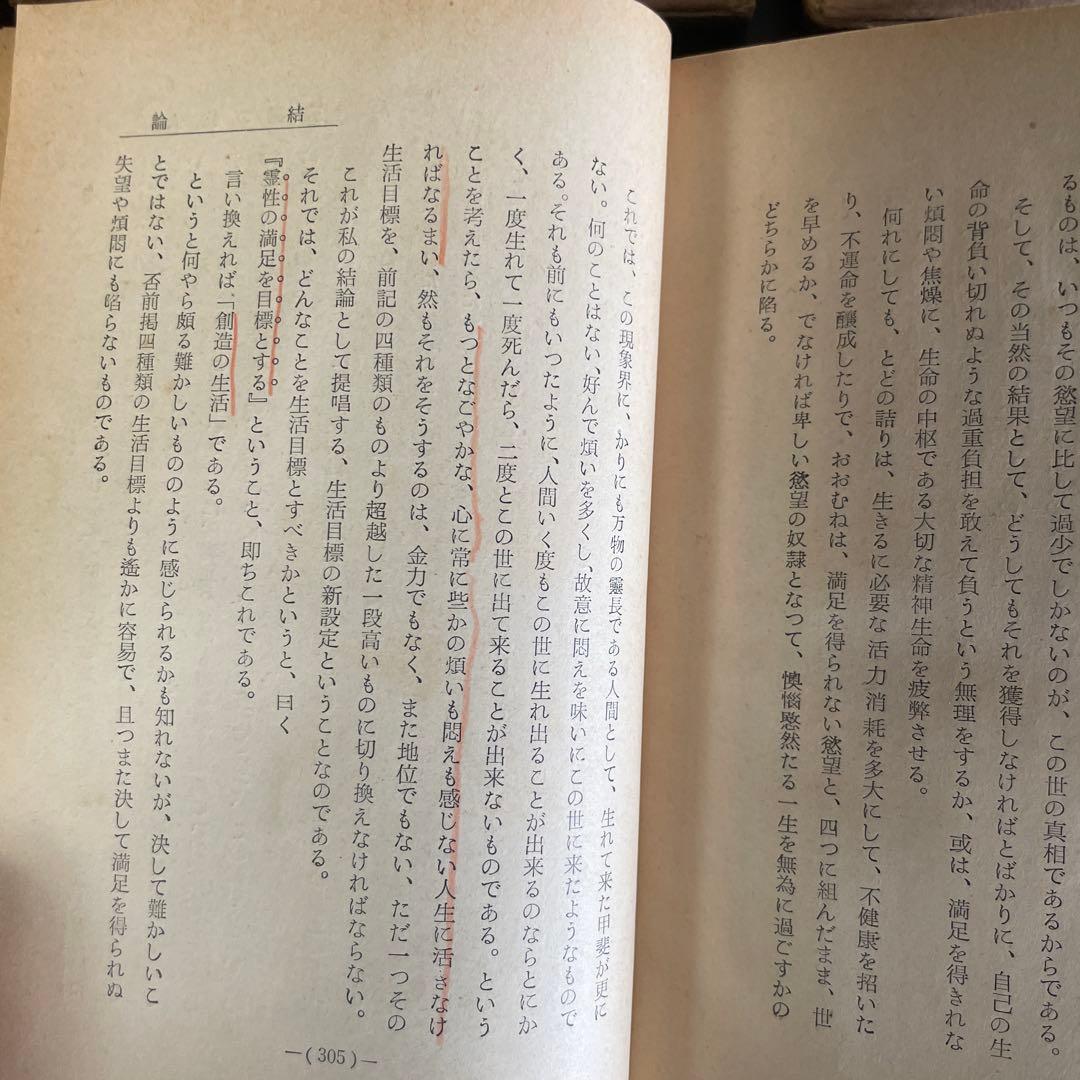 るものは、いつもその慾望に比して過少でしかないのが、この世の真相であるからである。
そして、その当然の結果として、どうしてもそれを獲得しなければとばかりに、自己の生
命の背負い切れぬような過重負担を敢えて負うという無理をするか、或は、満足を得きれな
い煩悶や焦燥に、生命の中枢である大切な精神生命を疲弊させる。
何れにしても、とどの詰りは、生きるに必要な活力消耗を多大にして、不健康を招いた
り、不運命を醸成したりで、おおむねは、満足を得られない慾望と、四つに組んだまま、世
を早めるか、でなければ卑しい慾望の奴隷となつて、懊惱愍然たる一生を無為に過ごすかの
どちらかに陥る。
結論
これでは、この現象界に、かりにも万物の靈長である人間として、生れて来た甲斐が更に
ない。何のことはない、好んで煩いを多くし、故意に悶えを味いにこの世に来たようなもので
ある。それも前にもいつたように、人間いく度もこの世に生れ出ることが出来るのならとにか
く、一度生れて一度死んだら、二度とこの世に出て来ることが出来ないものである。という
ことを考えたら、もつとなごやかな、心に常に些かの煩いも悶えも感じない人生に活さなけ
ればなるまい、然もそれをそうするのは、金力でもなく、また地位でもない、ただ一つその
生活目標を、前記の四種類のものより超越した一段高いものに切り換えなければならない。
これが私の結論として提唱する、生活目標の新設定ということなのである。
それでは、どんなことを生活目標とすべきかというと、曰く
『霊性の満足を目標とする』ということ、即ちこれである。
言い換えれば「創造の生活」である。
というと何やら頗る難かしいもののように感じられるかも知れないが、決して難かしいこ
とではない、否前掲四種類の生活目標よりも遙かに容易で、且つまた決して満足を得られぬ
失望や煩悶にも陥らないものである。
―(305)―